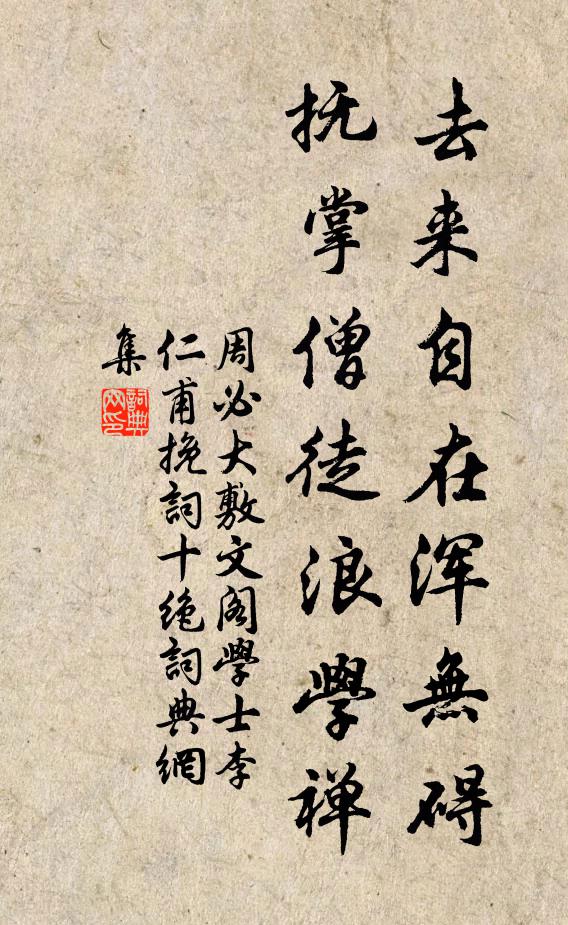 去来自在浑無碍
抚掌僧徒浪學禅
周必大敷文阁學士李
仁甫挽詞十绝詞典網
集
詞典網印